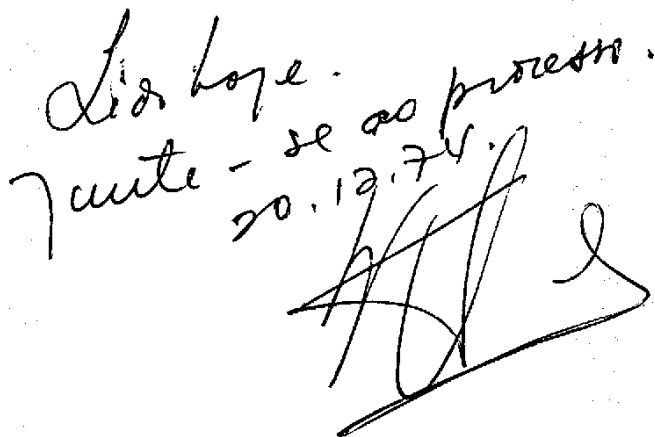 Lido hoje.
Junte-se ao processo.
20.12.74.